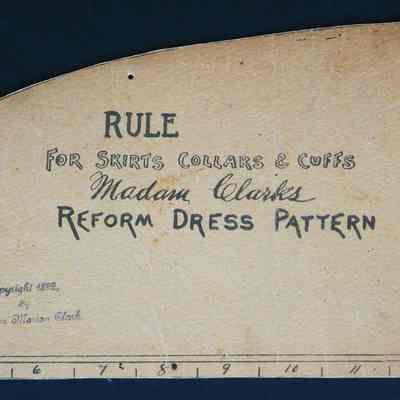 RULE
FOR SKIRTS COLLARS & CUFFS
Madam Clarks
REFORM DRESS PATTERN
pyright 1892,
By
Marian Clark
6 7 8 9 10 11